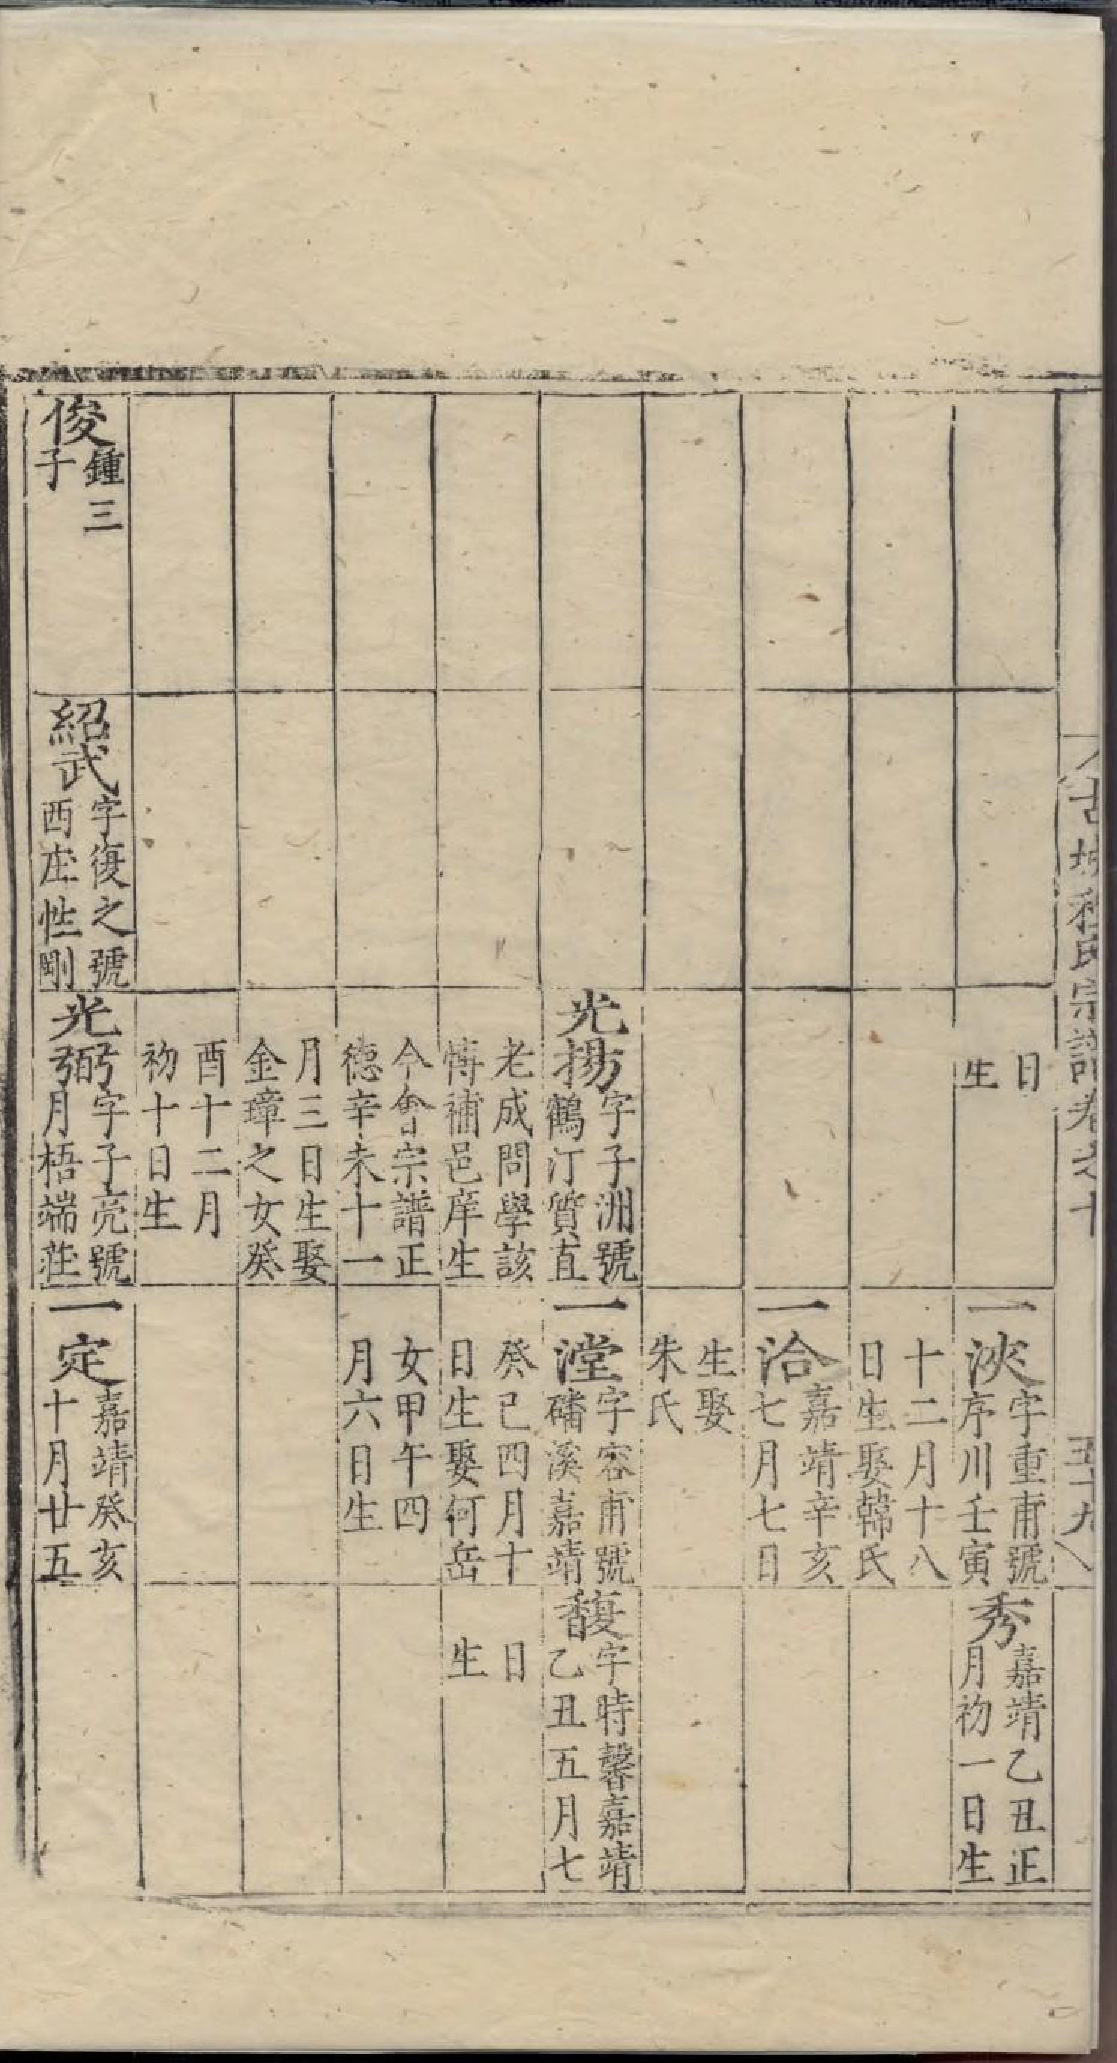 古城程氏宗譜卷之十
五十九
日
生
一浹
字重甫號
序川壬寅
十二月十八
日生娶韓氏
秀
嘉靖乙丑正
月初一日生
一洽
嘉靖辛亥
七月七日
生娶
朱氏
光揚
字子洲號
鶴汀質直
老成問學該
博補邑庠生
今會宗譜正
德辛未十一
月三日生娶
金璋之女癸
酉十二月
初十日生
一漟
字容甫號
磻溪嘉靖
癸巳四月十
日生娶何岳
女甲午四
月六日生
馥
字時馨嘉靖
乙丑五月七
日
生
俊
鍾三
子
紹武
字復之號
西庄性剛
光弼
字子亮號
月梧端莊
一定
嘉靖癸亥
十月廿五